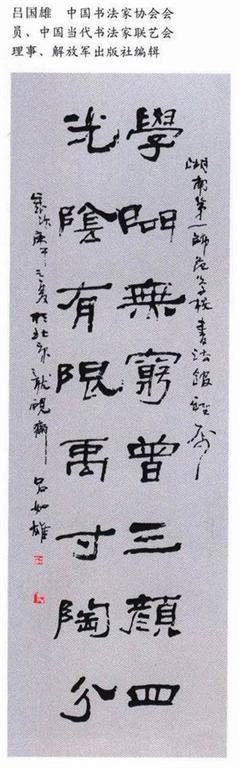 吕国雄 中国书法家协会会
员、中国当代书法家联艺会
理事、解放军出版社编辑
湖南第一師范学校書法館
學問無窮曾三顏四
光陰有限禹寸陶分
歲次庚午之夏於北京龍
吕 雄